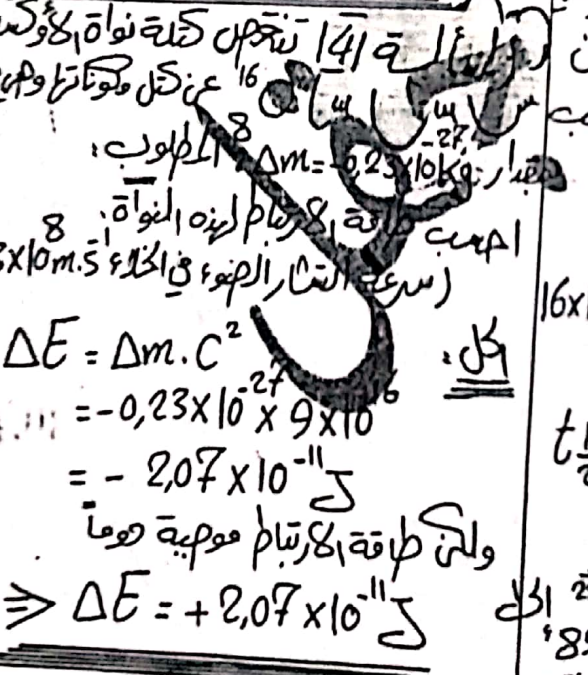 المسألة 14/ تنقص كتلة نواة الأوكس
16 عن كتل مكوناتها وهي
8
مقدار Δm = -0,23×10⁻²⁷ kg المطلوب:
احسب طاقة الارتباط لهذه النواة:
(سرعة انتشار الضوء في الخلاء 3×10⁸ m.s⁻¹
الحل:
ΔE = Δm.C²
= -0,23×10⁻²⁷ × 9×10¹⁶
= - 2,07×10⁻¹¹ J
ولكن طاقة الارتباط موجبة دوماً
⇒ ΔE = +2,07×10⁻¹¹ J
16×1
t½
الحل